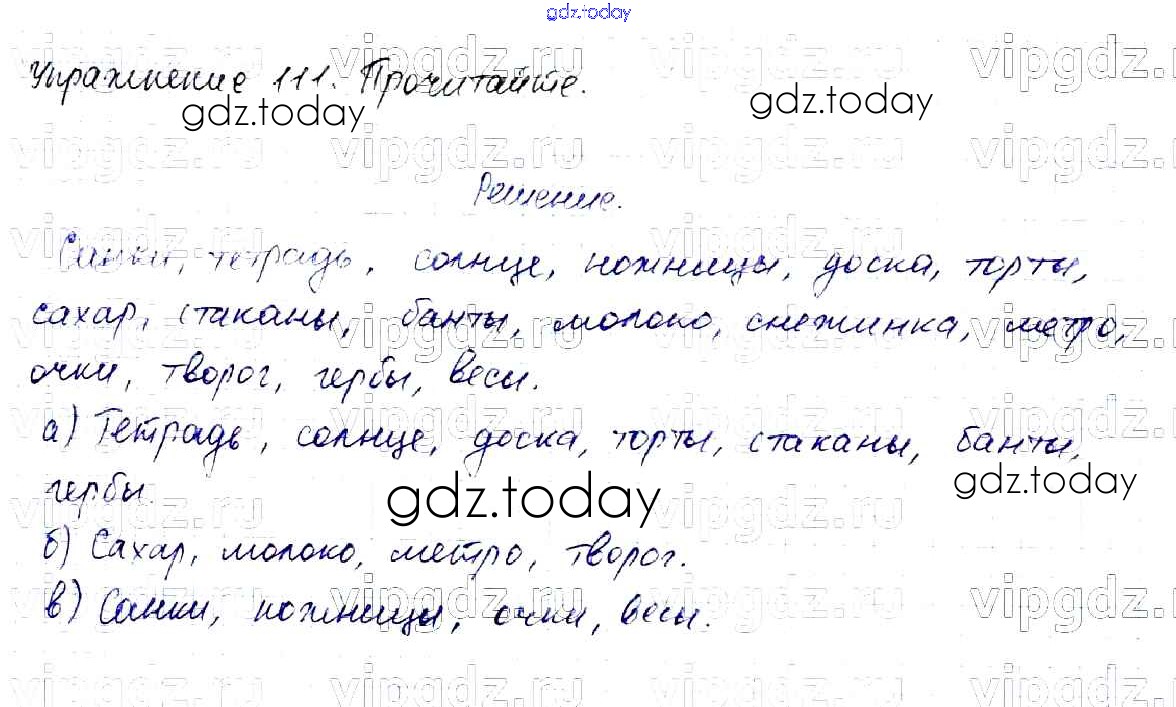 gdz.today
Упражнение 111. Прочитайте.
gdz.today
gdz.today
Решение.
Санки, тетрадь, солнце, ножницы, доска, торты,
сахар, стаканы, банты, молоко, снежинка, метро,
очки, творог, гербы, весы.
а) Тетрадь, солнце, доска, торты, стаканы, банты,
гербы.
gdz.today
gdz.today
б) Сахар, молоко, метро, творог.
в) Санки, ножницы, очки, весы.
vipgdz.ru